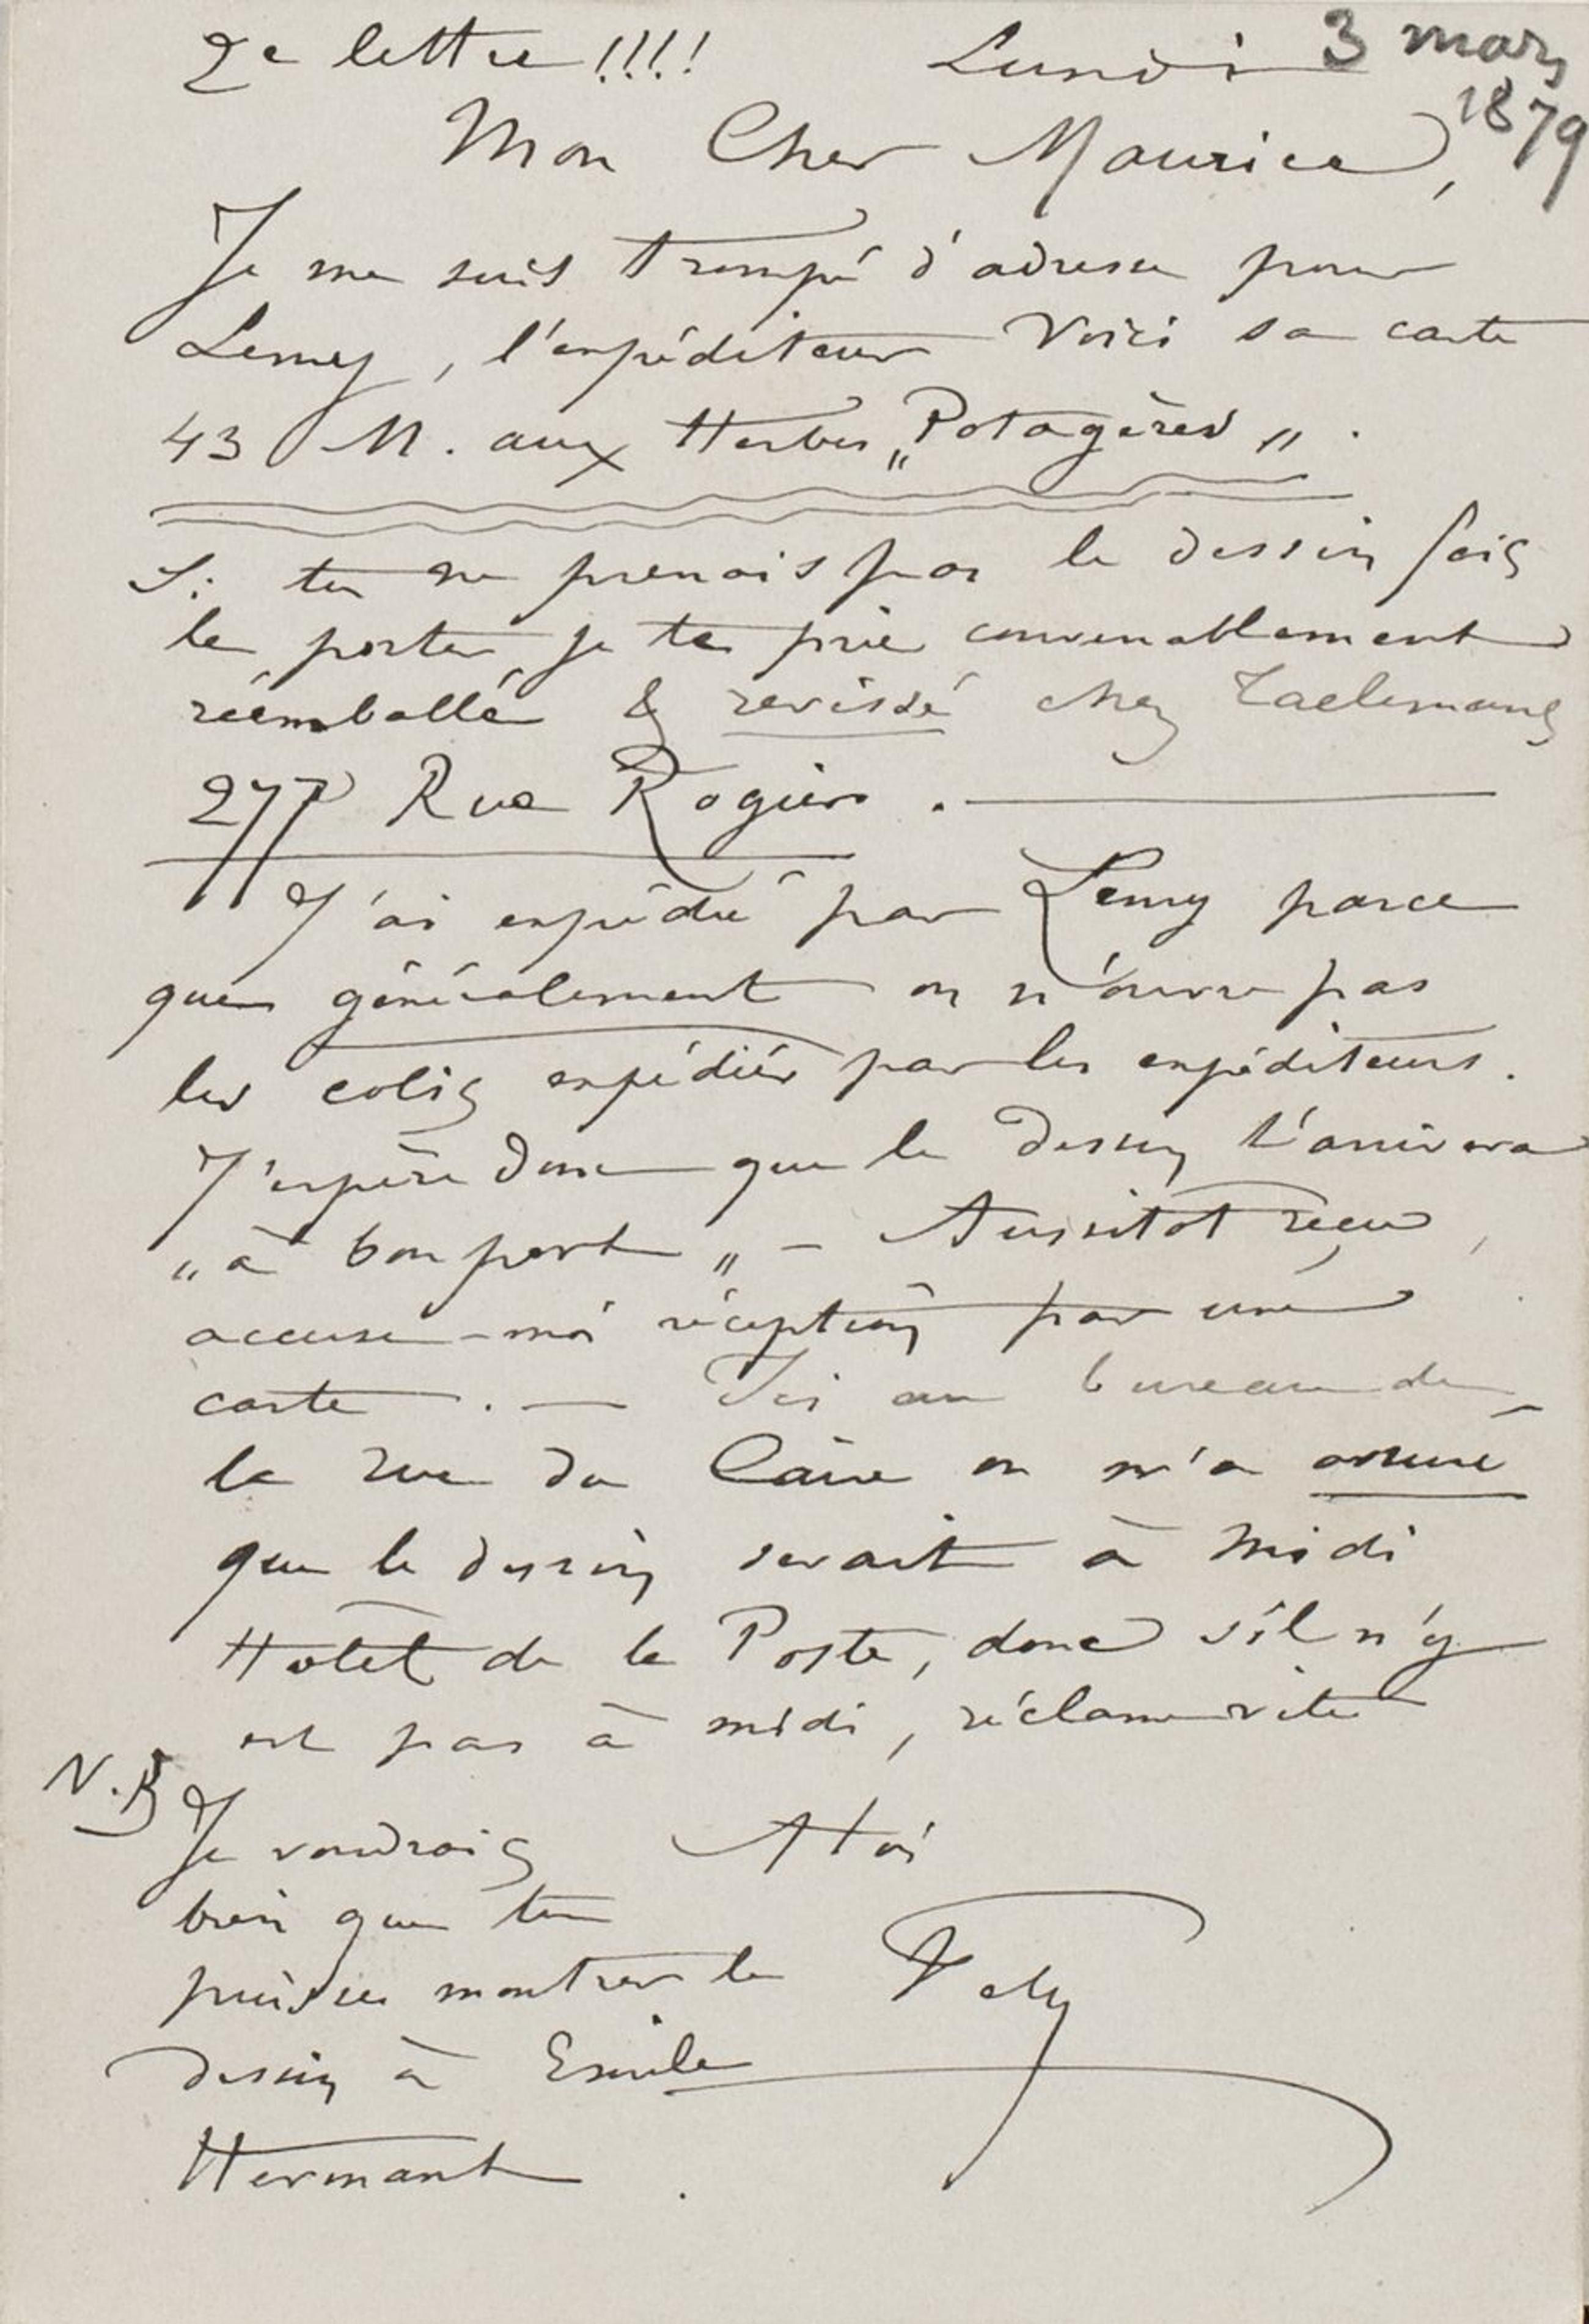 2e lettre !!!! Lundi 3 mars
1879
Mon Cher Maurice,
Je me suis trompé d'adresse pour
Lemy, l'expéditeur Voici sa carte
43 M. aux Herbes „Potagères„.
Si tu ne prenais pas le dessin fais
le porter je te prie convenablement
réemballé & revissé chez Taelemans
277 Rue Rogier. —
J'ai expédié par Lemy parce
que généralement on n'ouvre pas
les colis expédiés par les expéditeurs.
J'espère donc que le dessin t'arrivera
„à bon port„ – Aussitot reçu,
accuse-moi réception par une
carte. — Ici au bureau de
la rue du Caire on m'a assuré
que le dessin serait à midi
Hôtel de la Poste, donc s'il n'y
est pas à midi, réclame vite
N.B Je voudrais A toi
bien que tu
puisses montrer le Fely
dessin à Emile
Hermant.